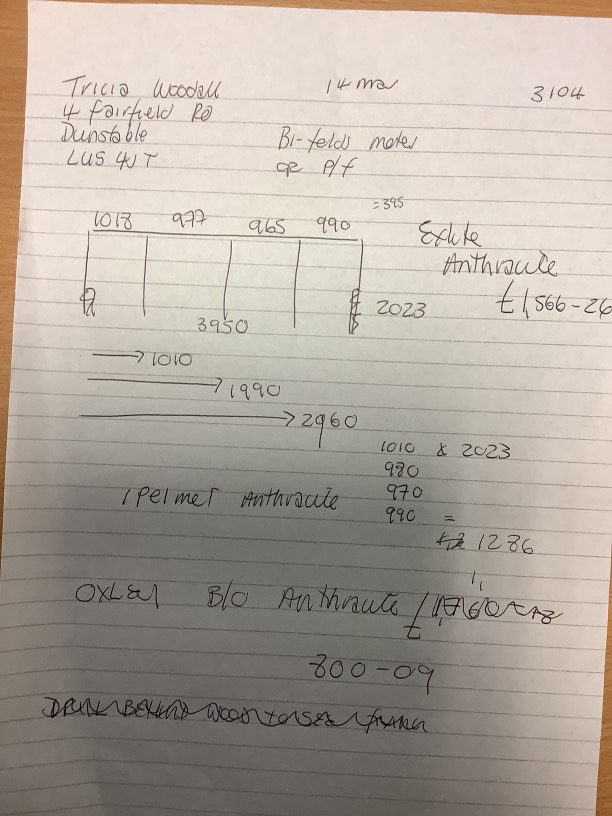 Tricia Woodall 14 mar 3104
4 fairfield RD
Dunstable Bi-folds
LU5 4JT or P/f
=395
1018 977 965 990
Anthracite
£1,566-26
2023
3950
1010
1990
2960
1010 x 2023
980
970
990 =
1286
1 Pelmet Anthracite
B/O Anthracite
£
800-09